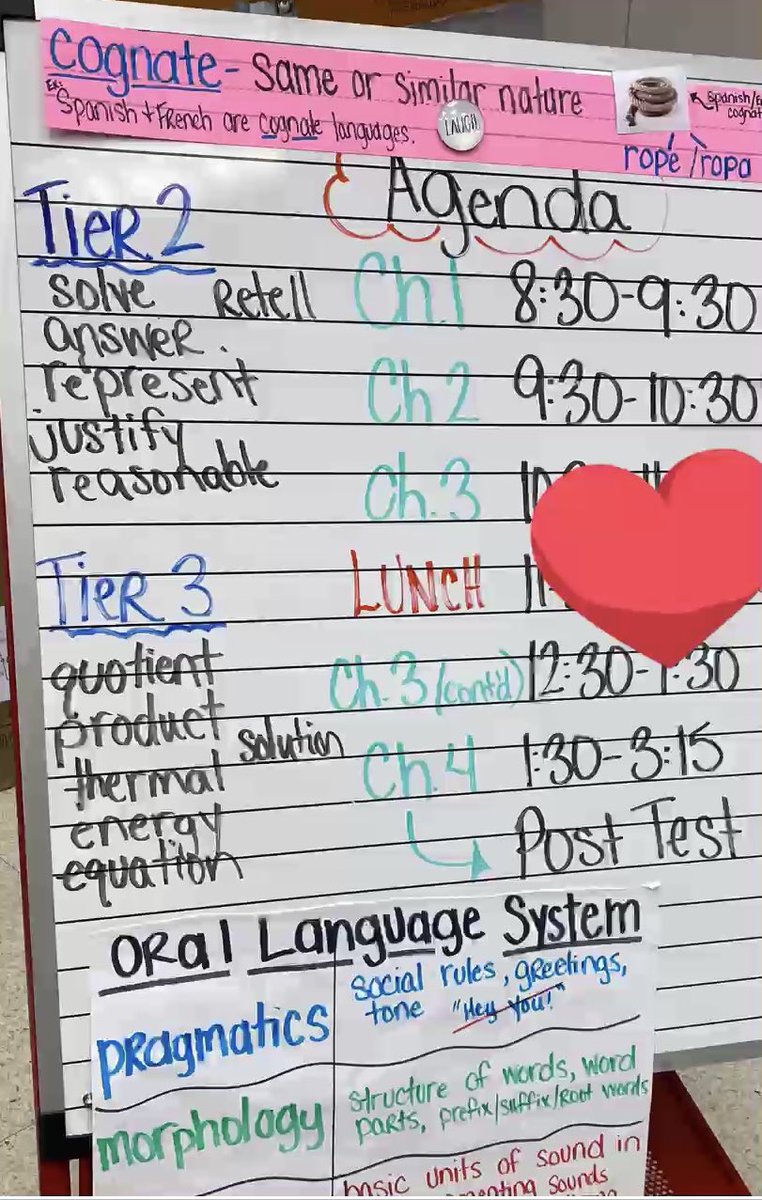 Cognate - Same or similar nature
Ex. Spanish + French are cognate languages.
LAUGH
Spanish/
rope / ropa
Agenda
Tier 2
solve Retell
answer.
represent
justify
reasonable
Ch.1 8:30-9:30
Ch 2 9:30-10:30
Ch. 3
LUNCH
Ch. 3 (cont'd) 12:30-1:30
Ch. 4 1:30-3:15
Post Test
Tier 3
quotient
product
solution
thermal
energy
equation
Oral Language System
pragmatics
social rules, greetings,
tone "Hey You!"
morphology
structure of words, word
parts, prefix/suffix/Root words
basic units of sound in
sounds